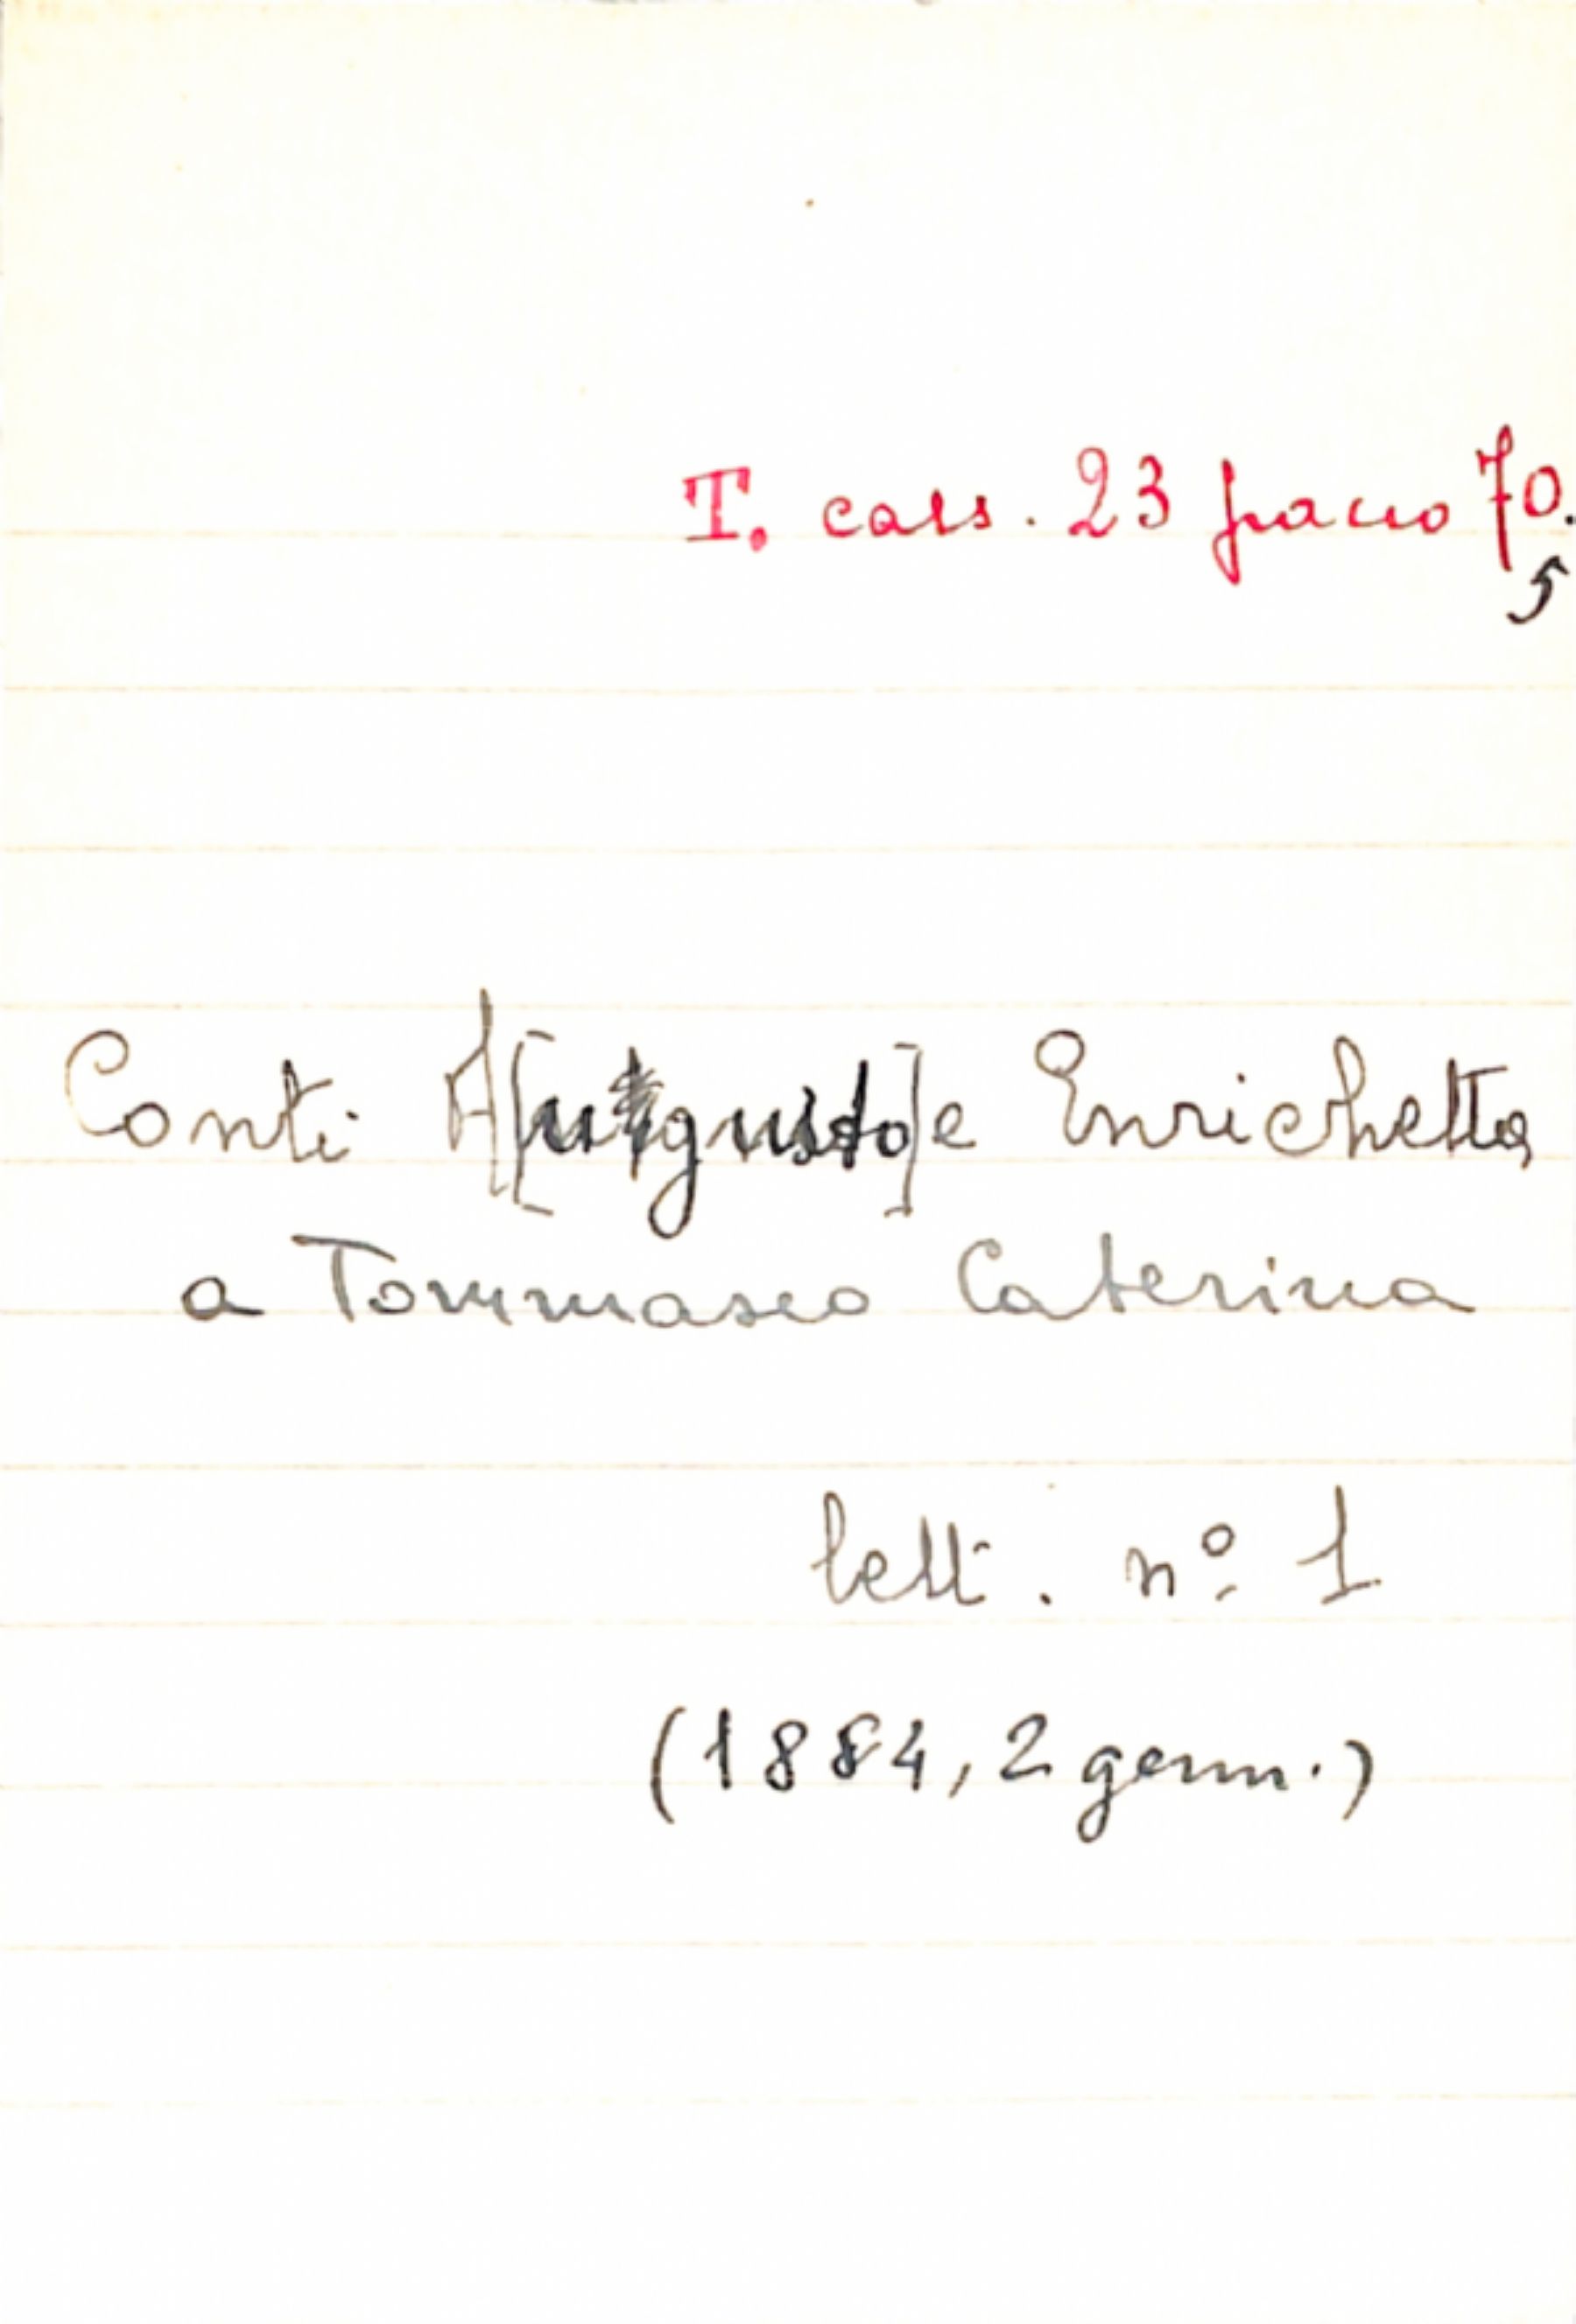 T. cass. 23 pacco 70.
5
Conti A[ugusto] e Enrichetta
a Tommaseo Caterina
lett. nº 1
(1884, 2 genn.)